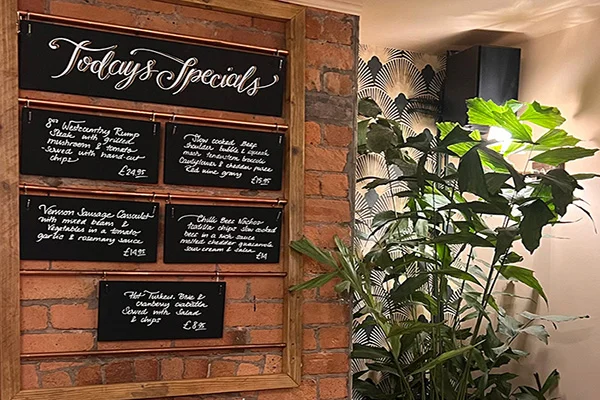 Todays Specials
8oz Westcountry Rump
Steak with grilled
mushroom & tomato
Served with hand-cut
chips
£24.95
Slow cooked Beef
Shoulder bubble & squeak
mash tenderstem broccoli
Cauliflower & cheddar puree
Red wine gravy
£18.95
Venison Sausage Cassoulet
with mixed beans &
Vegetables in a tomato
garlic & rosemary sauce
Chilli Beef Nachos
tortilla chips slow cooked
beef in a rich sauce
melted cheddar guacamole
sour cream & salsa
£14
Hot Turkey, Brie &
cranberry ciabatta
Served with Salad
& chips
£8.95